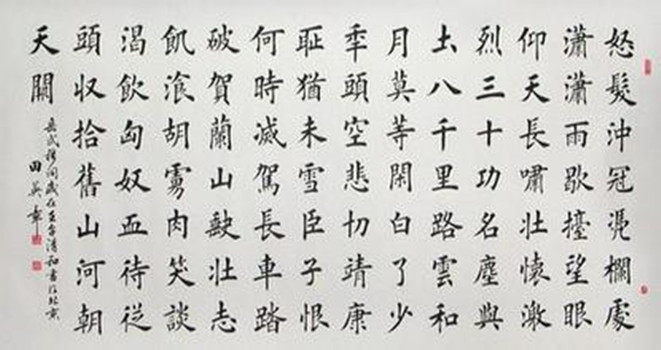 怒髮沖冠凭欄處
瀟瀟雨歇擡望眼
仰天長嘯壯懷激
烈三十功名塵與
土八千里路雲和
月莫等閑白了少
秊頭空悲切靖康
耻猶未雪臣子恨
何時滅駕長車踏
破賀蘭山缺壯志
飢飡胡虜肉笑談
渴飲匈奴血待從
頭收拾舊山河朝
天闕
岳武穆詞歲在壬清和書於北京
田英章